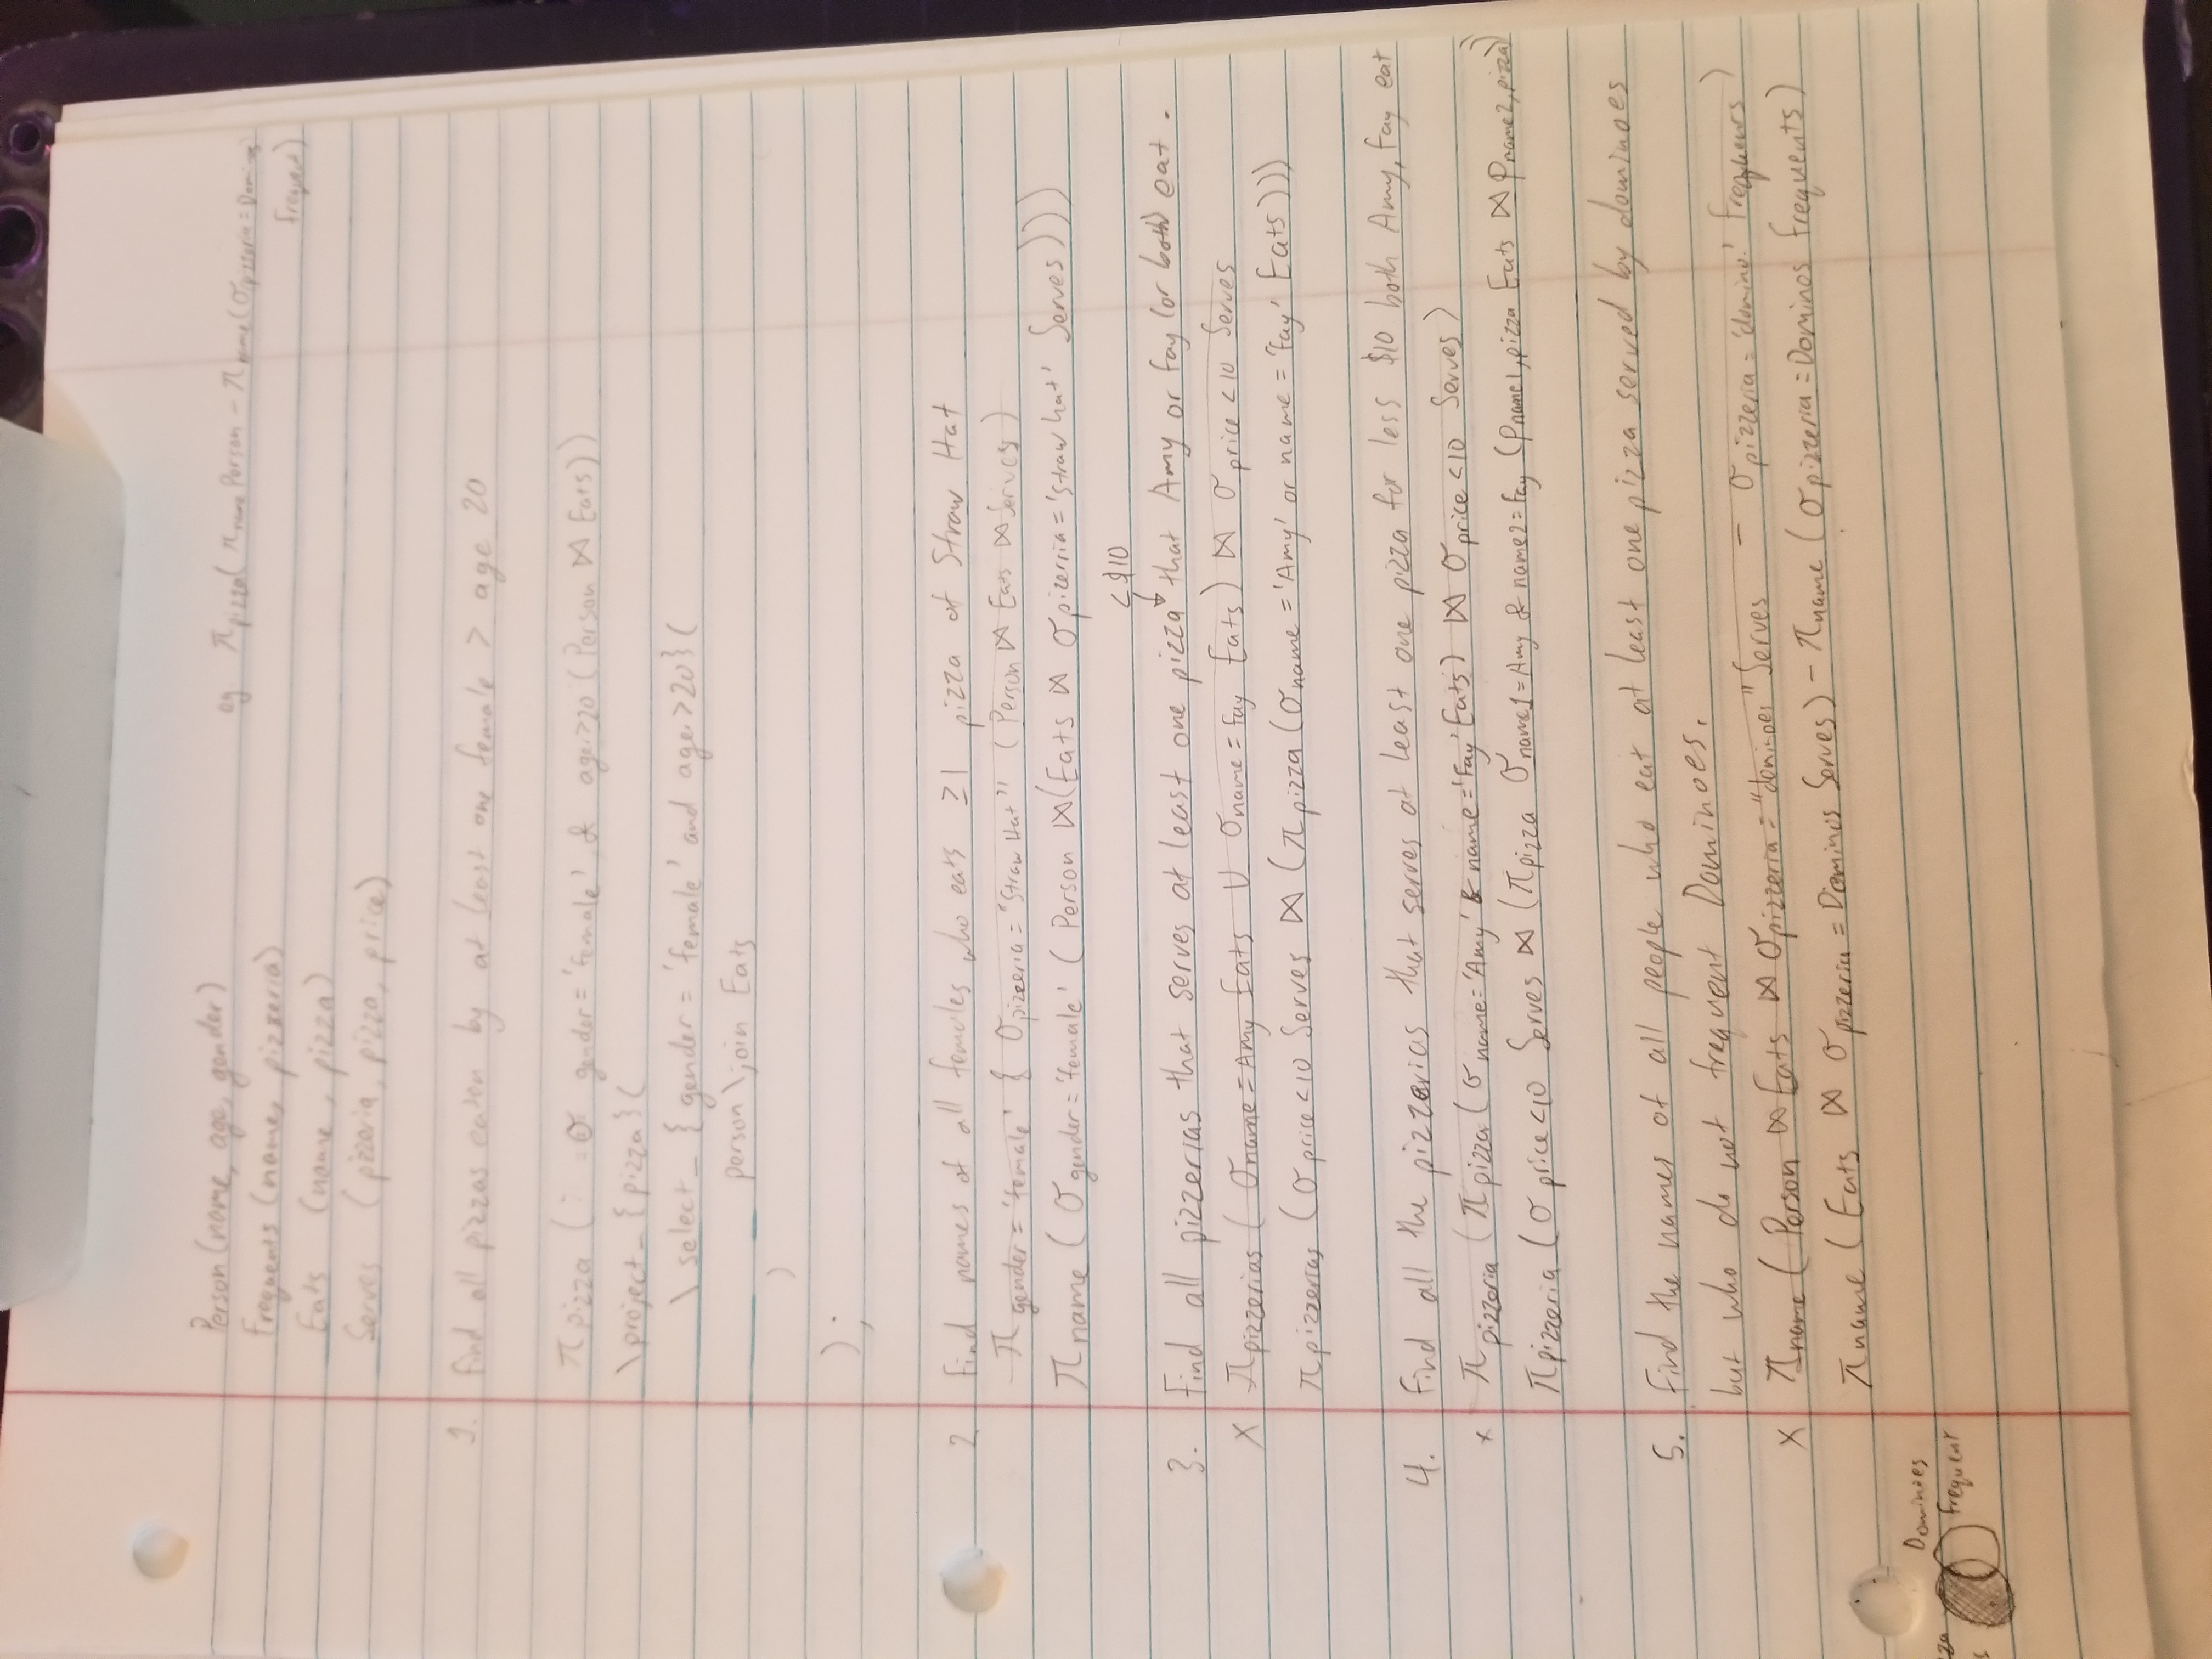 Person (name, age, gender)
eg π pizza( π name Person − π name(σ pizzeria = Dominos
Frequent)
Frequents (name, pizzeria)
Eats (name, pizza)
Serves (pizzeria, pizza, price)
1. Find all pizzas eaten by at least one female > age 20
π pizza ( σ gender = 'female' & age >20 (Person ⋈ Eats))
\project_{pizza}(
\select_{gender = 'female' and age >20}(
person \join Eats
)
);
2 Find names of all females who eats ≥1 pizza of Straw Hat
π gender = 'female' { σ pizzeria = "Straw Hat" (Person ⋈ Eats ⋈ Serves)
π name ( σ gender = 'female' ( Person ⋈ (Eats ⋈ σ pizerria = 'straw hat' Serves)))
< $10
3. Find all pizzerias that serves at least one pizza that Amy or Fay (or both) eat.
X π pizzerias ( σ name = Amy Eats ∪ σ name = Fay Eats) ⋈ σ price < 10 Serves
π pizzerias ( σ price < 10 Serves ⋈ ( π pizza ( σ name = 'Amy' or name = 'Fay' Eats)))
4. Find all the pizzerias that serves at least one pizza for less $10 both Amy, Fay eat
x π pizzeria ( π pizza ( σ name = 'Amy' & name = 'Fay' Eats) ⋈ σ price < 10 Serves)
π pizzeria ( σ price < 10 Serves ⋈ ( π pizza σ name1 = Amy & name2 = Fay ( ρ name1, pizza Eats ⋈ ρ name2, pizza))
5. Find the names of all people who eat at least one pizza served by dominoes
but who do not frequent Dominoes.
X π name ( Person ⋈ Eats ⋈ σ pizzerria = "dominoes" Serves − σ pizzeria = 'domino' Frequents)
π name ( Eats ⋈ σ pizzeria = Dominos Serves) − π name ( σ pizzeria = Dominos Frequents)
Dominoes
frequent